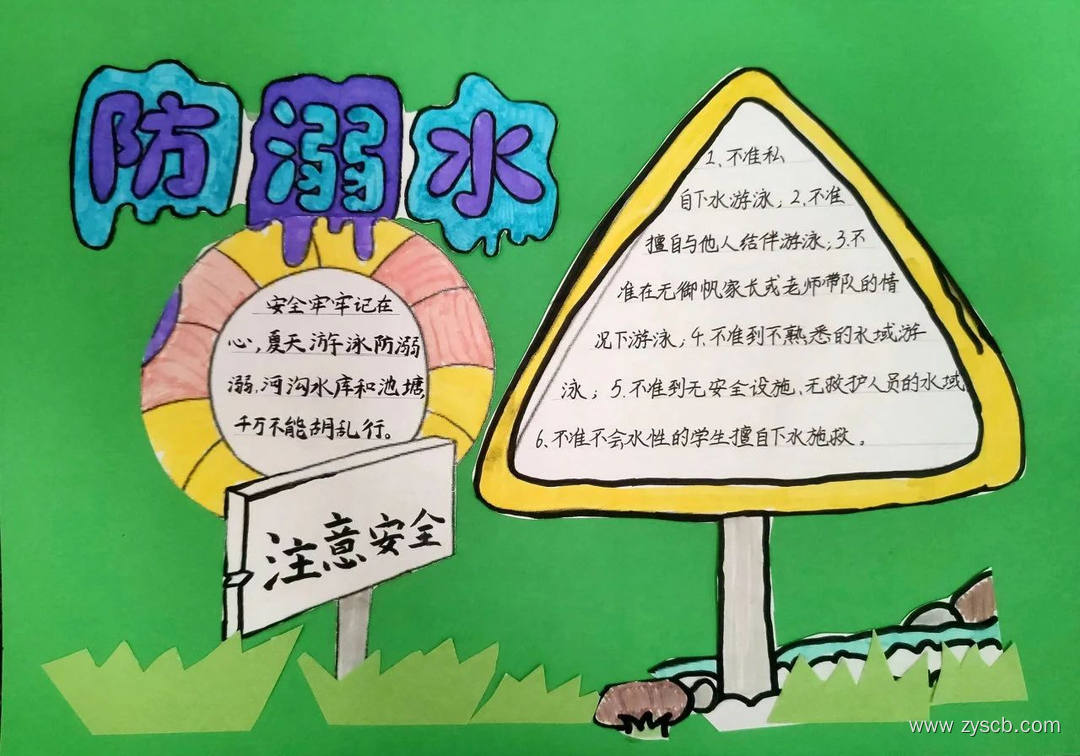 防溺水
安全牢牢记在
心,夏天游泳防溺
溺.河沟水库和池塘,
千万不能胡乱行。
注意安全
1、不准私
自下水游泳；2.不准
擅自与他人结伴游泳；3.不
准在无御帆家长或老师带队的情
况下游泳；4.不准到不熟悉的水域游
泳；5.不准到无安全设施、无救护人员的水域
6.不准不会水性的学生擅自下水施救。
www.zyscb.com